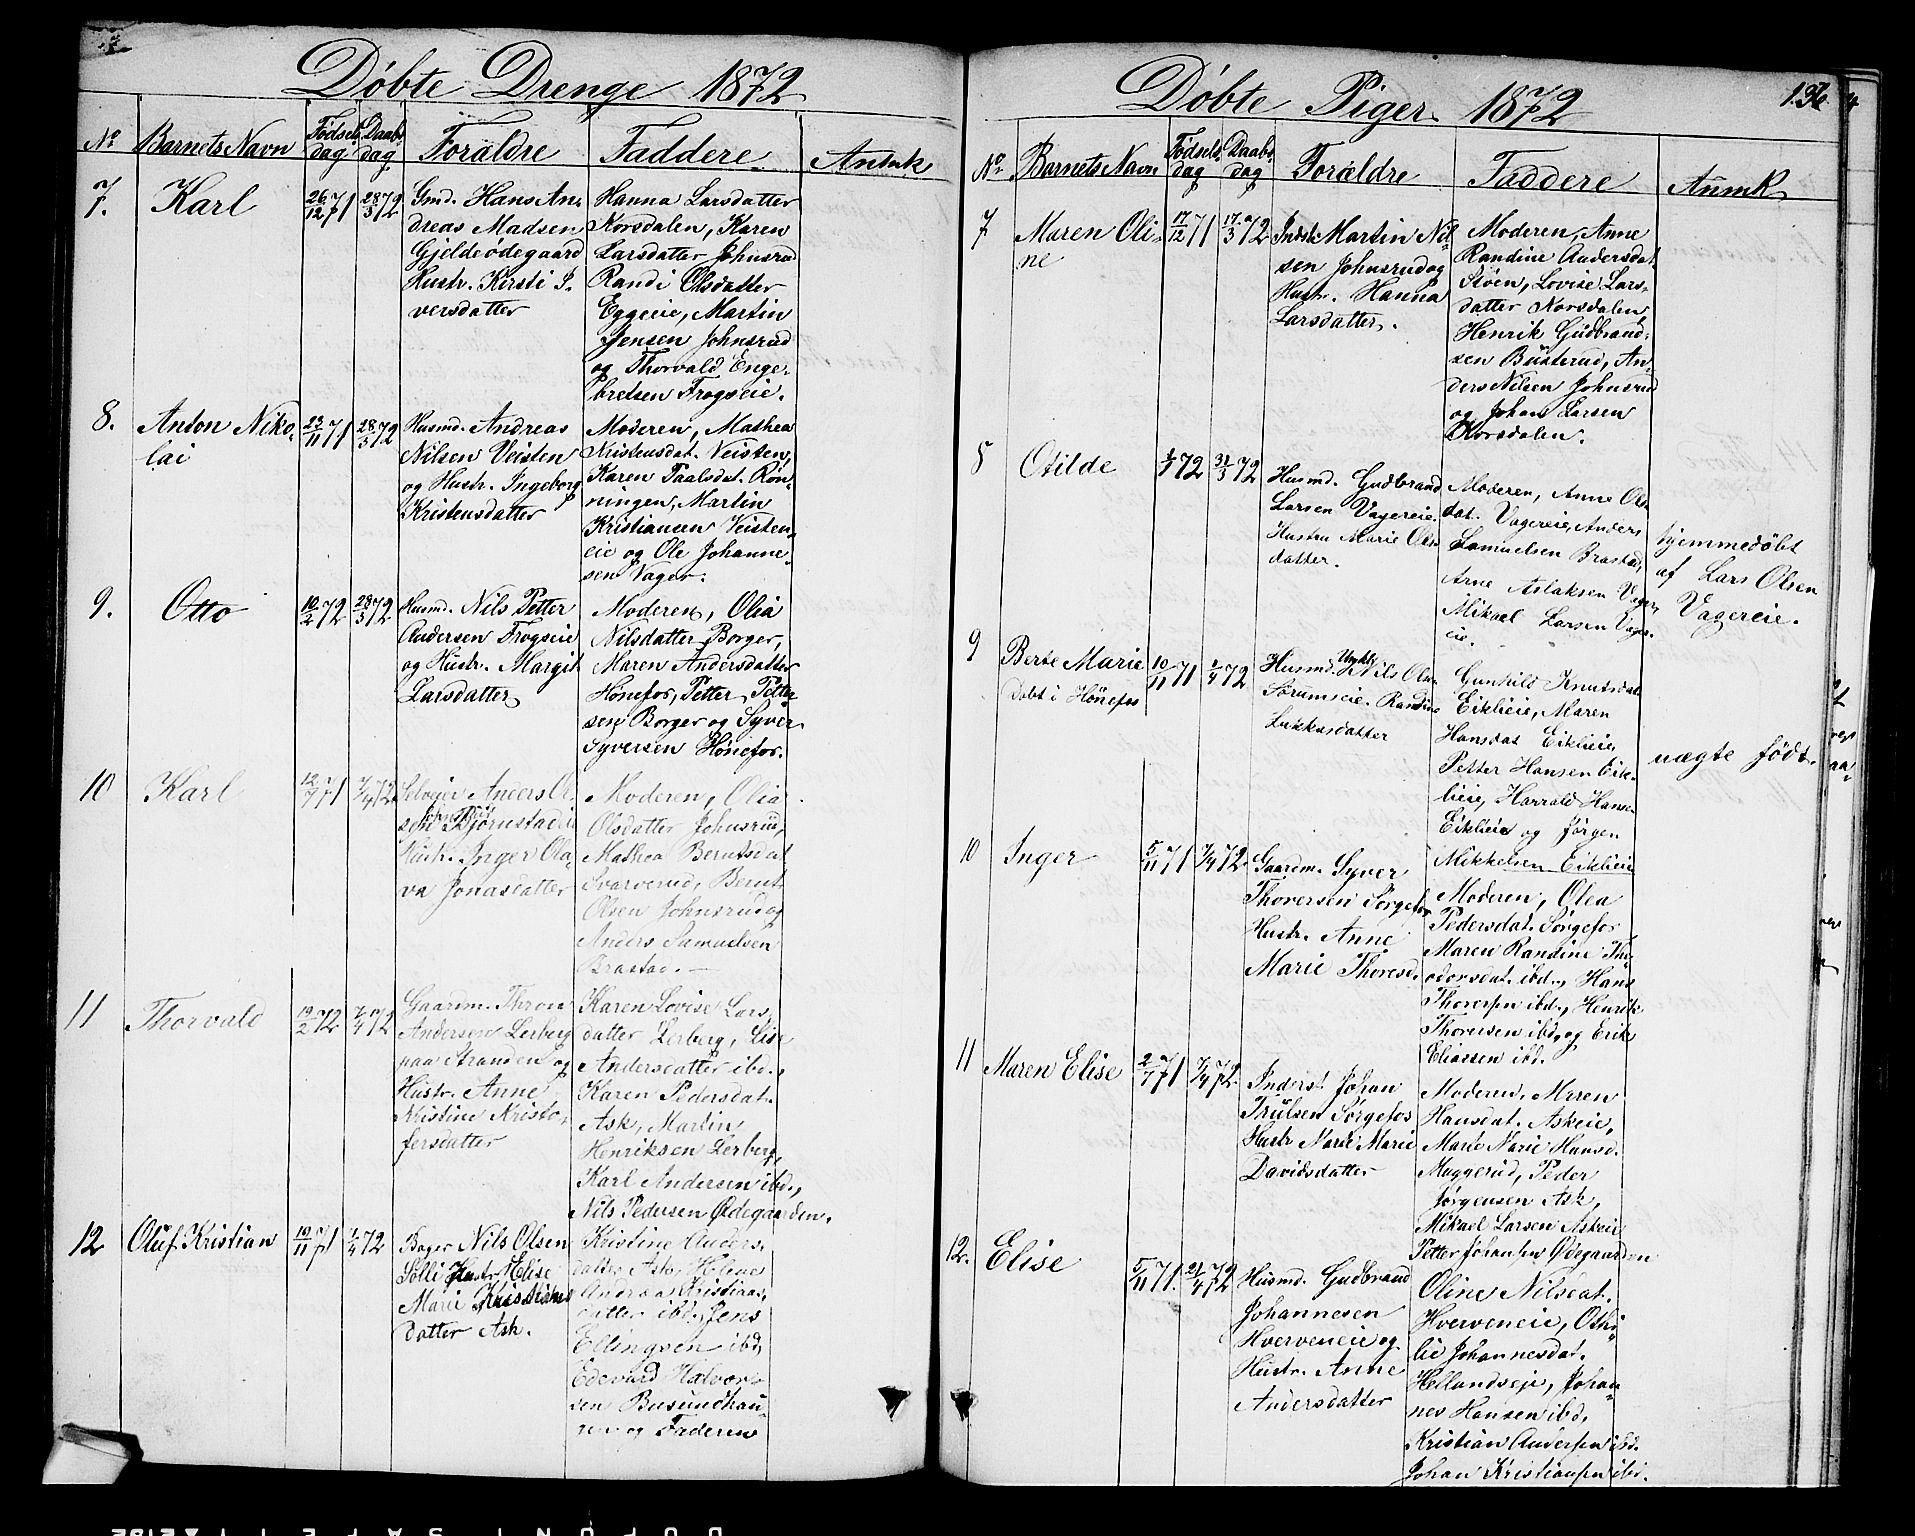 Döbte Drenge 1872
No Barnets Navn Födselsdag Daabsdag Forældre Faddere Anmk
7. Karl 26/12 71 28/3 72
Gmd. Hans An-
dreas Madsen
Gjeldeödegaard
Hustr. Kirsti I-
versdatter
Hanna Larsdatter
Korsdalen, Karen
Larsdatter Johnsrud
Randi Olsdatter
Eggeie, Martin
Jensen Johnsrud
og Thorvald Enge-
bretsen Frogseie.
8. Anton Niko-
lai
23/11 71 28/3 72
Husmd. Andreas
Nilsen Veisten
og Hustr. Ingeborg
Kristensdatter
Moderen, Mathea
Kristensdat. Veisten,
Karen Paalsdat. Rön-
ningen, Martin
Kristiansen Veisten-
eie og Ole Johanne-
sen Vager.
9. Otto 10/2 72 28/3 72
Husmd. Nils Petter
Andersen Frogseie
og Hustr. Margit
Larsdatter
Moderen, Olia
Nilsdatter Borger,
Maren Andersdatter
Hönefos, Petter Petter-
sen Borger og Syver
Syversen Hönefos.
10 Karl 12/7 71 7/4 72
Selveier Anders Ol-
sen Bjørnstadeie
Hustr. Inger Ola-
va Jonasdatter
Moderen, Olia
Olsdatter Johnsrud,
Mathea Berntsdat
Svarverud, Bernt
Olsen Johnsrud og
Anders Samuelsen
Brastad. —
11 Thorvald 19/2 72 7/4 72
Gaardm. Thron
Andersen Lerberg
paa Stranden og
Hustr. Anne
Kristine Kristo-
fersdatter
Karen Lovise Lars-
datter Lerberg, Lise
Andersdatter ibd.,
Karen Pedersdat.
Ask, Martin
Henriksen Lerberg,
Karl Andersen ibd.,
Nils Pedersen Ödegaarden.
12 Oluf Kristian 19/11 71 7/4 72
Bager Nils Olsen
Solli Hustr. Elise
Marie Kristians
datter Ask.
Kristine Anders-
datter Ask, Helene
Andrea Kristians-
datter ibd. Jens
Ellingsen ibd,
Edevard Halvor-
sen Busundhau-
gen og Faderen
Döbte Piger. 1872
136
No. Barnets Navn Födselsdag Daabsdag Forældre Faddere Anmk
7 Maren Oli-
ne
17/12 71 17/3 72
Indst. Martin Nil-
sen Johnsrud og
Hustr. Hanna
Larsdatter.
Moderen, Anne
Randine Andersdat.
Stöen, Lovise Lars-
datter Korsdalen
Henrik Gudbrand-
sen Busterud, An-
ders Nilsen Johnsrud
og Johan Larsen
Korsdalen.
8 Otilde 1/1 72 31/3 72
Husmd. Gudbrand
Larsen Vagereie.
Hustru Marie Ols-
datter.
Moderen, Anne Ols-
dat. Vagereie, Anders
Samuelsen Brastad,
Arne Aslaksen Vager,
Mikael Larsen Vager-
eie.
hjemmedöbt
af Lars Olsen
Vagereie.
9 Berte Marie
Dobt i Hönefos
10/11 71 1/4 72
Husmd. Ungkl. Nils Olsen
Sörumseie. Randine
Lukkasdatter
Gunhild Knutsdat
Eiklieie, Maren
Hansdat Eiklieie
Petter Hansen Eik-
lieie, Harrald Hans-
Eiklieie og Jörgen
Mikkelsen Eiklieie
uægte födt.
10 Inger 5/11 71 7/4 72
Gaardm. Syver
Thoversen Sörgefos
Hustr. Anne
Marie Thoresd.
Moderen, Olea
Pedersdat. Sörgefos
Maren Randine The-
odorsdat. ibd., Hans
Thoversen ibd., Henrik
Thoversen ibd, og Erik
Eliassen ibd.
11 Maren Elise 2/7 71 7/4 72
Inderst Johan
Trulsen Sörgefos
Hustr Marie
Davidsdatter
Moderen, Maren
Hansdat. Askeie,
Marte Marie Hansd.
Muggerud, Peder
Jörgensen Ask,
Mikael Larsen Askeie
Petter Johansen Ödegaarden
12. Elise 5/11 71. 21/4 72
Husmd. Gudbrand
Johannesen
Hverveneie og
Hustr. Anne
Andersdatter
Oline Nilsdat.
Hverveneie, Othi-
lie Johannesdat.
Hellandseje, Johan-
nes Hansen ibd,
Kristian Andersen ibd.
Johan Kristiansen ibd.